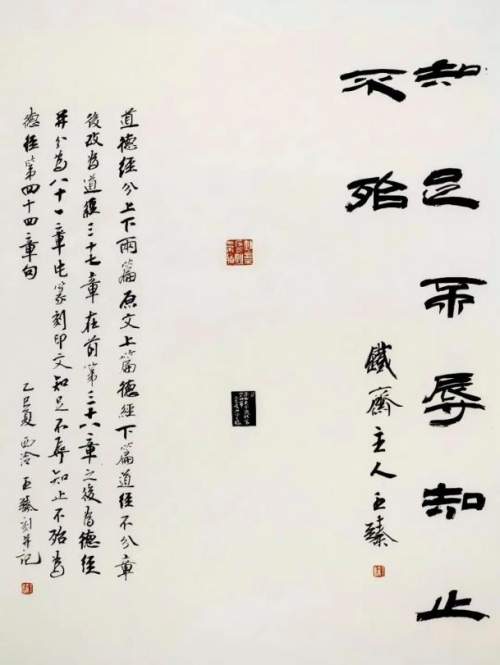 知足不辱知止
不殆
鐵齋主人王臻
道德經分上下兩篇原文上篇德經下篇道經不分章
後改為道經三十七章在前第三十八章之後為德經
并分為八十一章此篆刻印文知足不辱知止不殆為
德經第四十四章句
乙巳夏西泠王臻刻并記